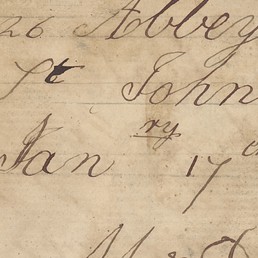 26 Abbey
St John
Janry 17th